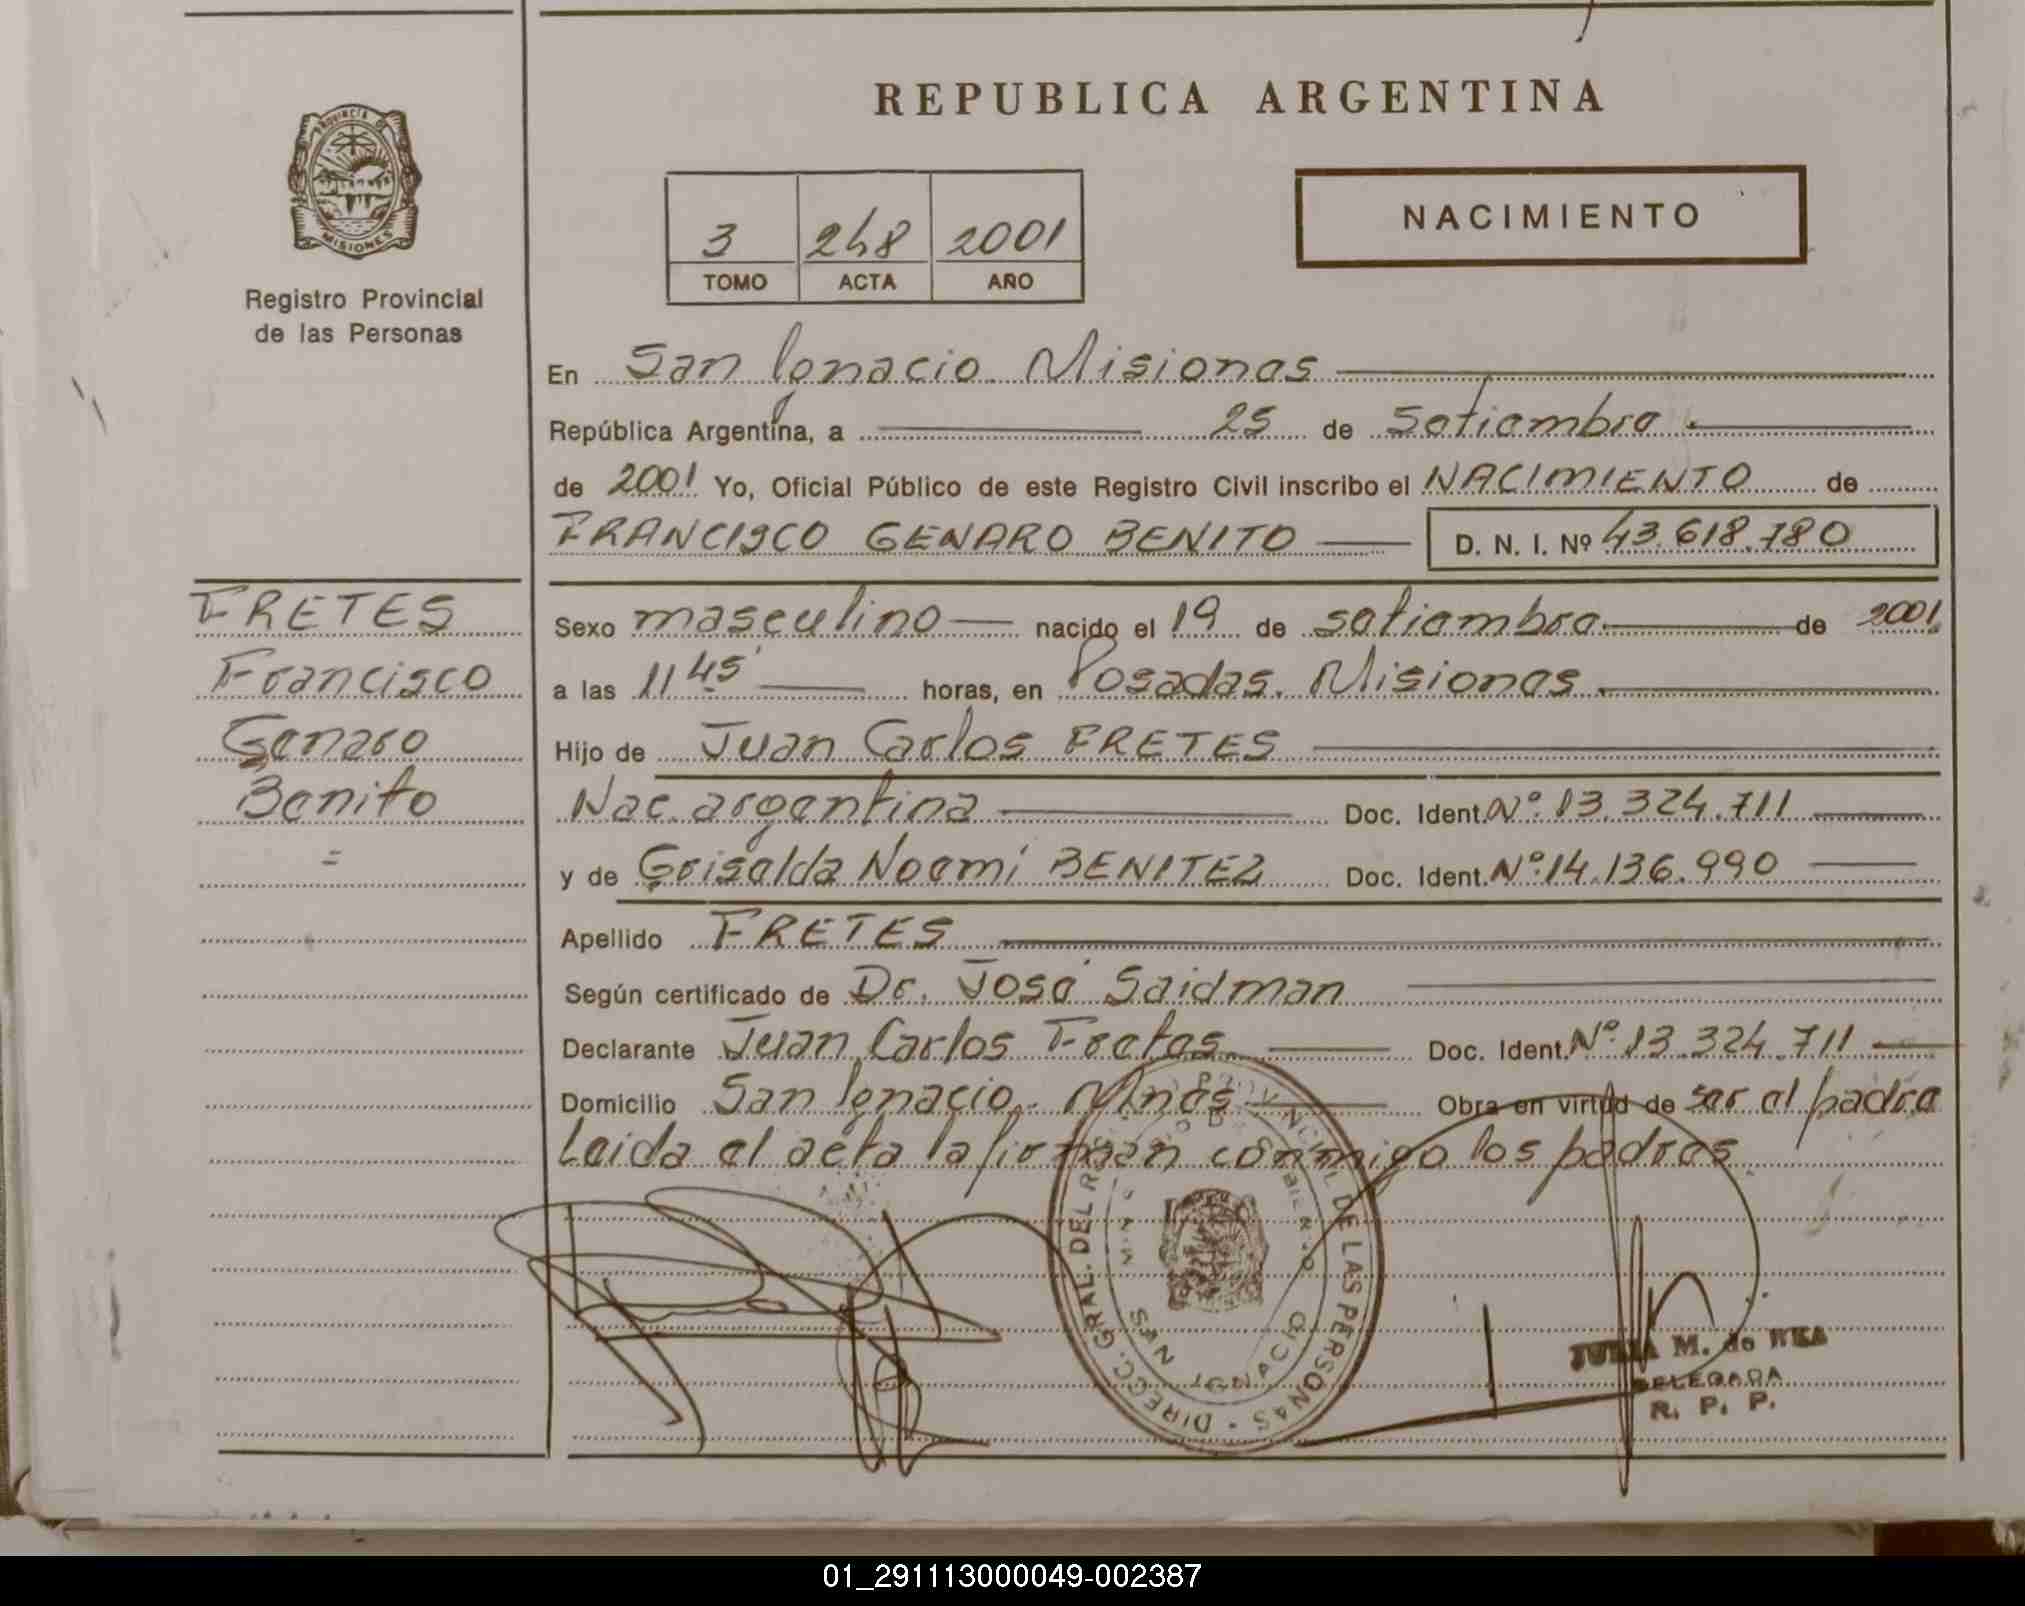 REPUBLICA ARGENTINA
PROVINCIA DE
MISIONES
Registro Provincial
de las Personas
3 248 2001
TOMO ACTA AÑO
NACIMIENTO
En San Ignacio Misiones
República Argentina, a 25 de Setiembre
de 2001 Yo, Oficial Público de este Registro Civil inscribo el NACIMIENTO de
FRANCISCO GENARO BENITO D. N. I. Nº 43.618.780
FRETES
Francisco
Genaro
Benito
=
Sexo masculino nacido el 19 de setiembre de 2001
a las 11 45' horas, en Posadas. Misiones
Hijo de Juan Carlos FRETES
Nac. argentina Doc. Ident. Nº 13.324.711
y de Griselda Noemí BENITEZ Doc. Ident. Nº 14.136.990
Apellido FRETES
Según certificado de Dr. José Saidman
Declarante Juan Carlos Fretes Doc. Ident. Nº 13.324.711
Domicilio San Ignacio. Mnes Obra en virtud de ser el padre
Leida el acta la firman conmigo los padres
DIRECC. GRAL. DEL PROVINCIAL DE LAS PERSONAS
SAN IGNACIO
M. de
DELEGADA
R. P. P.
01_291113000049-002387